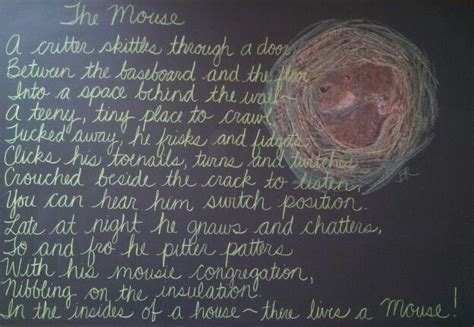 The Mouse
A critter skittles through a door,
Between the baseboard and the floor
Into a space behind the wall~
A teeny, tiny place to crawl
Tucked away, he frisks and fidgets
Clicks his toenails, turns and twitches
Crouched beside the crack to listen,
You can hear him switch position.
Late at night he gnaws and chatters,
To and fro he pitter patters
With his mousie congregation,
Nibbling on the insulation.
In the insides of a house~there lives a Mouse!